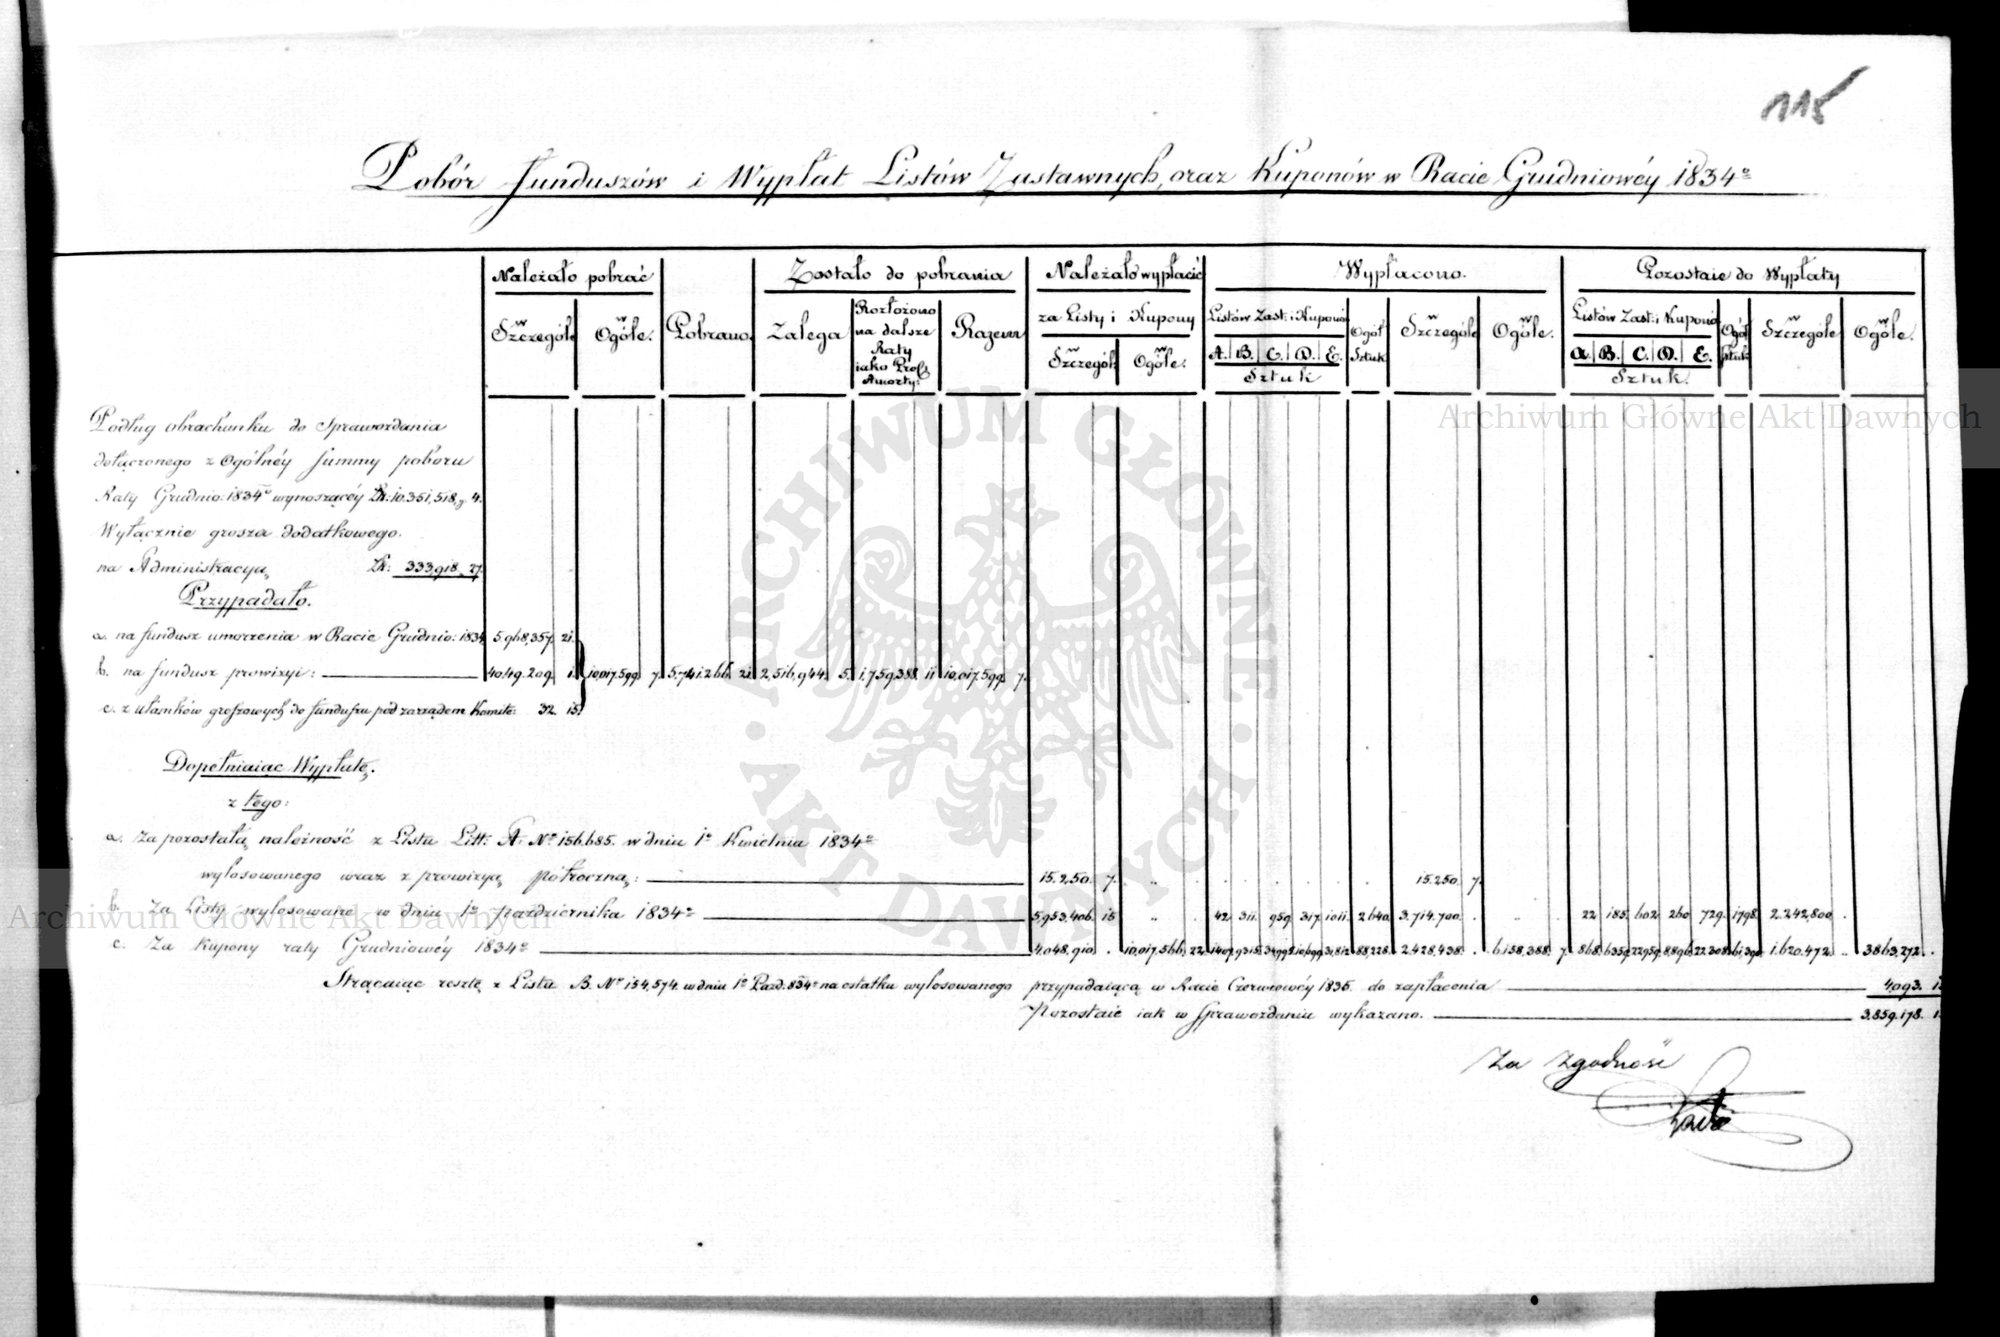 115
Pobór Funduszów i Wypłat Listów Zastawnych, oraz Kuponów w Racie Grudniowéy 1834º
Należało pobrać
Zostało do pobrania
Należało wypłacić
Wypłacono.
Pozostaie do Wypłaty
w Szczególe
w Ogóle.
Pobrano.
Zalega
Rozłożono na dalsze Raty iako Proct Amorty:
Razem
za Listy i Kupony
w Szczegól:
w Ogóle.
Listów Zast: i Kuponów
A. B. C. D. E.
Sztuk
Ogół Sztuk
w Szczególe
w Ogóle.
Listów Zast: i Kuponów
A. B. C. D. E.
Sztuk.
Ogół Sztuk
w Szczególe
w Ogóle.
Podług obrachunku do Sprawozdania
dołączonego z Ogólnéy Summy poboru
Raty Grudnio: 1834º wynoszącéy Zł: 10.351,518, g 4.
Wyłącznie grosza dodatkowego.
na Administracyą Zł: 333,918. 27.
Przypadało.
a. na fundusz umorzenia w Racie Grudnio: 1834 5.968,357. 21.
b. na fundusz prowizyi: 4.049.209. 1. 10,017,599 7. 5.741.266. 21. 2,516,944. 5. 1.759,388. 11 10,017,599 7.
c. z ułamków groszowych do funduszu pod zarządem Komite: 32. 15.
Dopełniaiąc Wypłatę.
z tego:
a. Za pozostałą należność z Listu Litt: A. Nº 156.685. w dniu 1º Kwietnia 1834º
wylosowanego wraz z prowizyą półroczną: 15.250. 7. 15.250. 7.
b. Za Listy wylosowane w dniu 1º Października 1834º 5,953.406. 15 42. 311. 959. 317. 1011. 2640. 3.714.700. 22. 185. 602. 260. 729. 1798. 2.242,800.
c. Za Kupony raty Grudniowéy 1834º 4.048,910. 10,017.566. 22. 2.428,438. 6.158,388. 7. 1.620,472. 3.863,272.
Strącaiąc resztę z Listu B. Nº 154,574. w dniu 1º Pazd: 834º na ostatku wylosowanego przypadaiącą w Racie Czerwcowéy 1835. do zapłacenia 4,093.
Pozostaie iak w Sprawozdaniu wykazano. 3.859.178.
Za Zgodność
ARCHIWUM GŁÓWNE AKT DAWNYCH
Archiwum Główne Akt Dawnych
Archiwum Główne Akt Dawnych